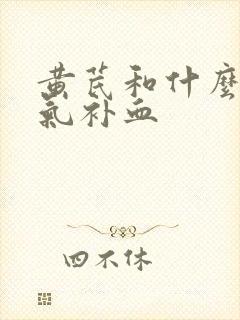 黄芪和什麼
氣补血
四不休